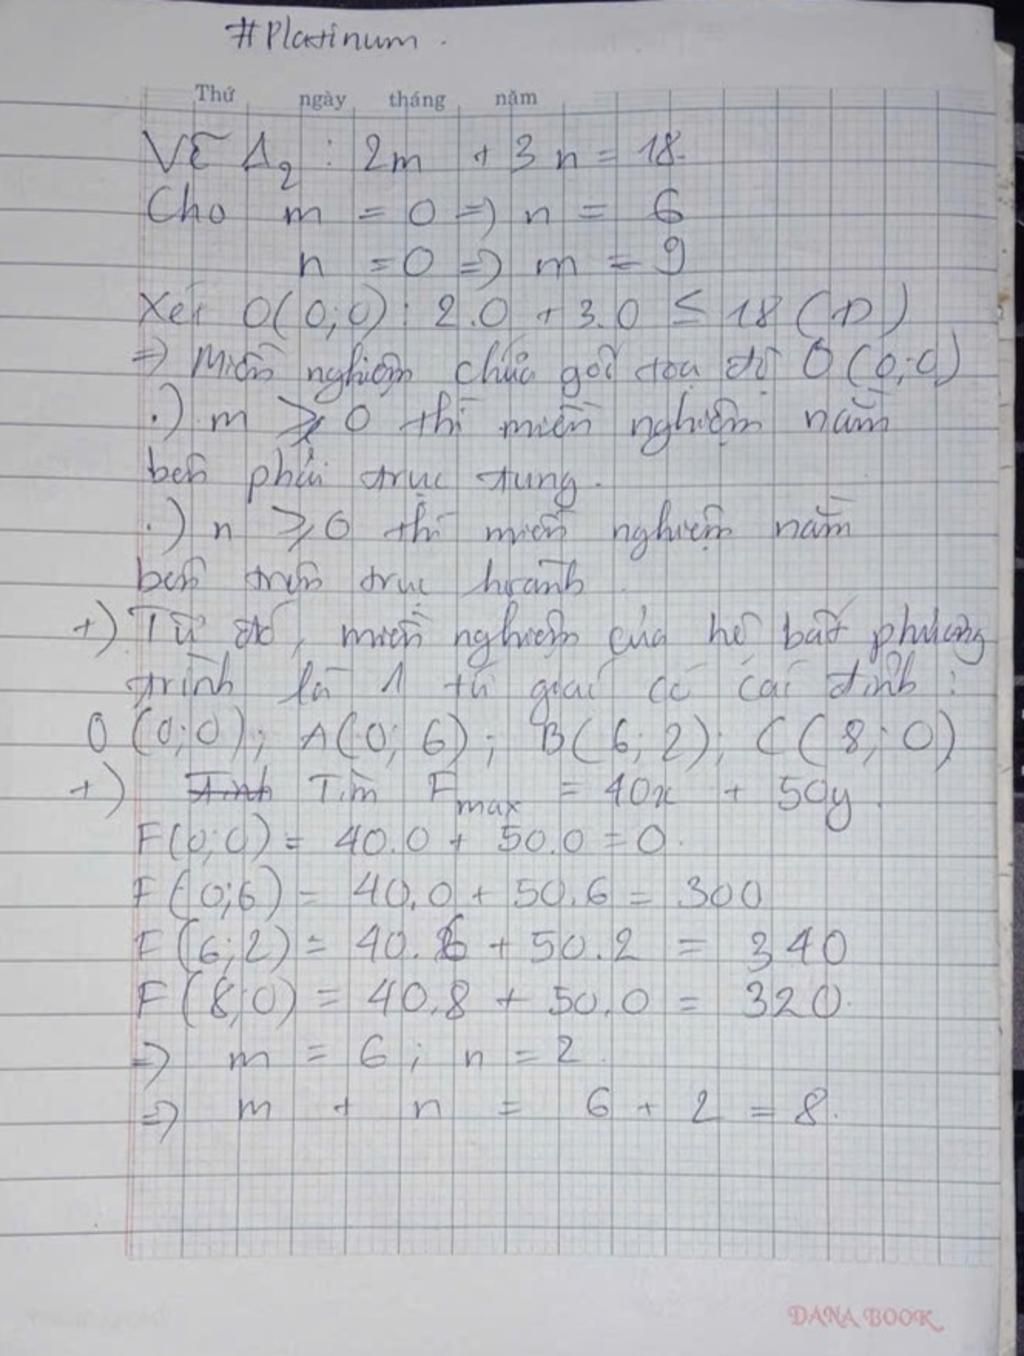 #Platinum.
Thứ ngày tháng năm
Vẽ Δ₂ : 2m + 3n = 18.
Cho m = 0 => n = 6
n = 0 => m = 9
Xét O(0;0) : 2.0 + 3.0 ≤ 18 (Đ)
=> Miền nghiệm chứa gốc tọa độ O (0;0)
.) m ⩾ 0 thì miền nghiệm nằm
bên phải trục tung.
.) n ⩾ 0 thì miền nghiệm nằm
bên trên trục hoành
+) Từ đó, miền nghiệm của hệ bất phương
trình là 1 tứ giác có các đỉnh :
O (0;0); A(0;6); B(6;2); C(8;0)
+) Tính Tìm Fmax = 40x + 50y.
F(0;0) = 40.0 + 50.0 = 0.
F(0;6) = 40.0 + 50.6 = 300
F(6;2) = 40.6 + 50.2 = 340
F(8;0) = 40.8 + 50.0 = 320.
=> m = 6 ; n = 2.
=> m + n = 6 + 2 = 8.
DANA BOOK